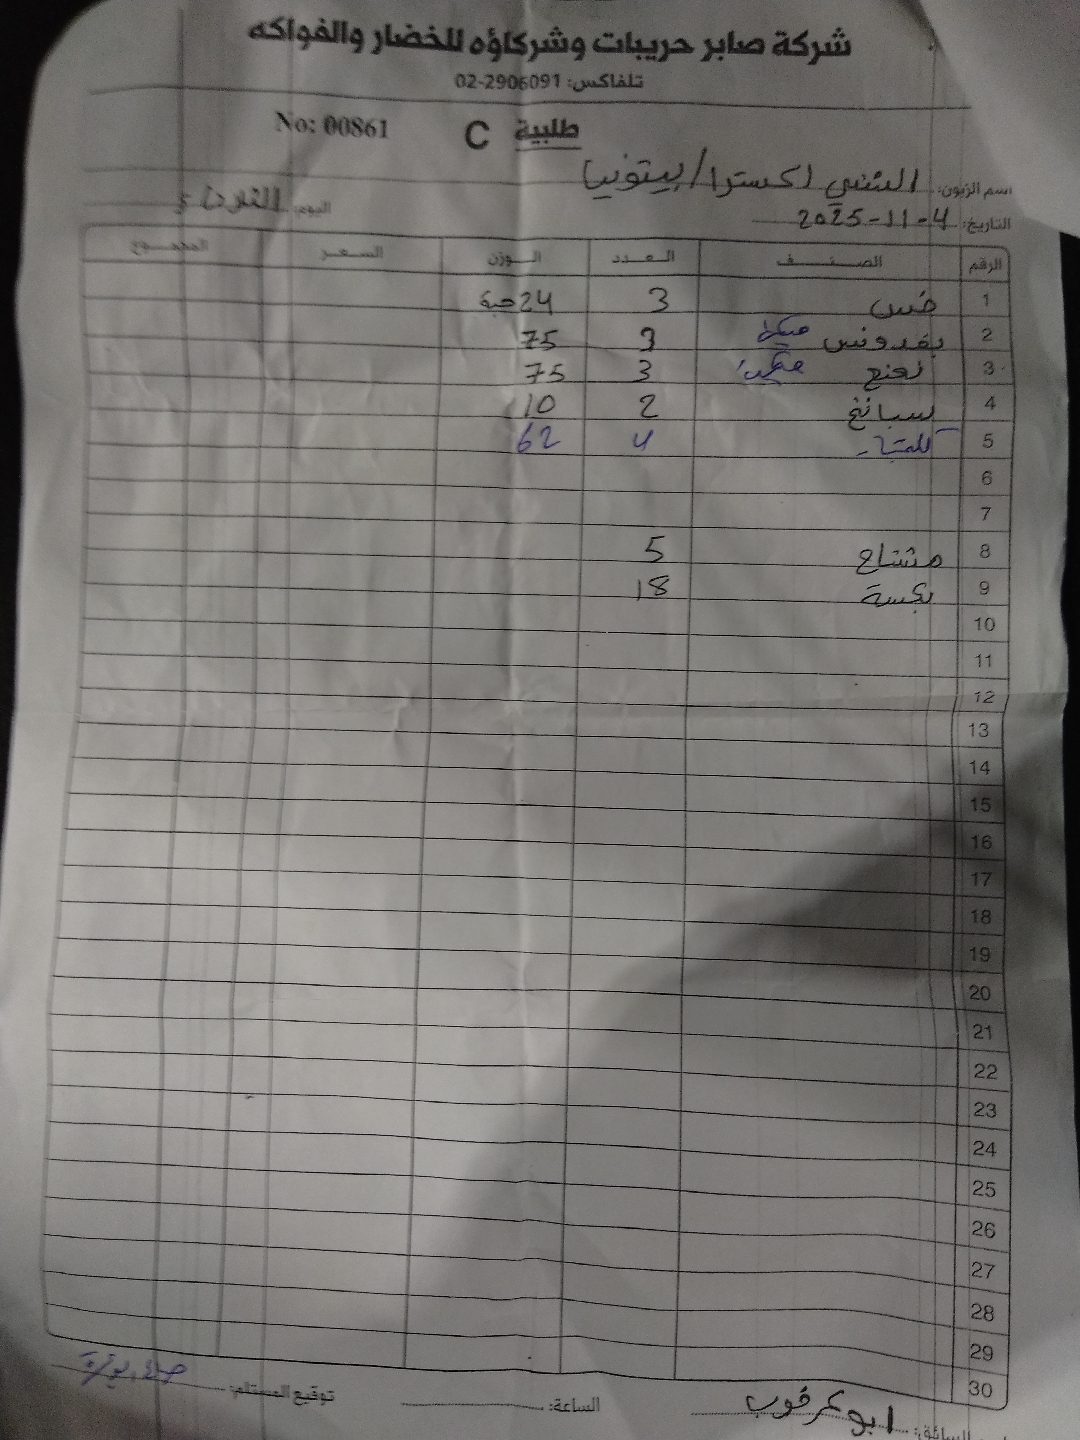 شركة صابر حريبات وشركاؤه للخضار والفواكه
تلفاكس: 02-2906091
No: 00861 C طلبية
اسم الزبون: الشني اكسترا / بيتونيا
اليوم: الثلاثاء
التاريخ: 2025-11-4
الرقم الصنف العدد الوزن السعر المجموع
1 خس 3 24 حبة
2 بقدونس 3 75
3 نعنع 3 75
4 سبانخ 2 10
5 4 62
6
7
8 مشتاح 5
9 بكسة 18
10
11
12
13
14
15
16
17
18
19
20
21
22
23
24
25
26
27
28
29
30
السائق: ابو عرقوب الساعة: توقيع المستلم: